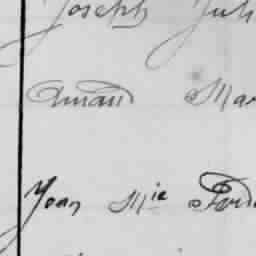 Joseph Jul
Amand Mar
Jean Mie Ferd